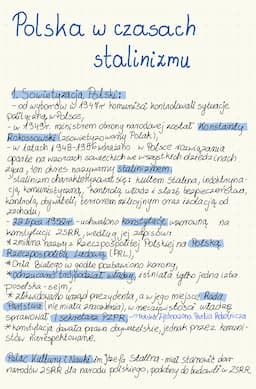 Polska w czasach
stalinizmu
1. Sowietyzacja Polski:
- od wyborów w 1947r komuniści kontrolowali sytuację
polityczną w Polsce,
- w 1949r. ministrem obrony narodowej został Konstanty
Rokossowski (zsowietyzowany Polak),
- w latach 1948-1956 w Polsce rozwiązania
oparte na wzorcach sowieckich we wszystkich dziedzinach
życia, ten okres nazywamy stalinizmem,
* stalinizm charakteryzował się: kultem Stalina, indoktryna-
cją komunistyczną, kontrolą władz i służb bezpieczeństwa,
kontrolą obywateli, terrorem milicyjnym oraz izolacją od
zachodu,
- 22 lipca 1952r. - uchwalono konstytucję wzorowaną na
konstytucji ZSRR, według jej zapisów:
* zmiana nazwy z Rzeczpospolitej Polskiej na Polską
Rzeczpospolitą Ludową (PRL),
* Orła Białego w godle pozbawiono korony,
* odrzucano trójpodział władzy, istniała tylko jedna izba
poselska - sejm,
* zlikwidowano urząd prezydenta, a w jego miejsce Rada
Państwa (nie miała znaczenia), w rzeczywistości władzę
sprawował I sekretarz PZPR, Zjednoczona Partia Robotnicza
* konstytucja dawała prawa obywatelskie, jednak przez komuni-
stów nierespektowane.
Pałac Kultury i Nauki im. Józefa Stalina - miał stanowić dar
narodów ZSRR dla narodu polskiego, podobny do budowli w ZSRR.